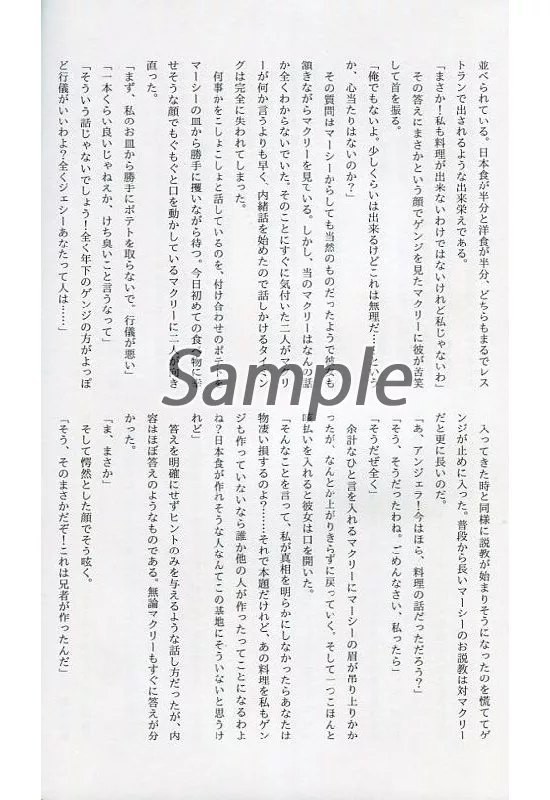 並べられている。日本食が半分と洋食が半分、どちらもまるでレス
トランで出されるような出来栄えである。
「まさか！私も料理が出来ないわけではないけれど私じゃないわ」
その答えにまさかという顔でゲンジを見たマクリーに彼が苦笑
して首を振る。
「俺でもないよ。少しくらいは出来るけどこれは無理だ……という
か、心当たりはないのか？」
その質問はマーシーからしても当然のものだったようで彼女も
頷きながらマクリーを見ている。しかし、当のマクリーはなんの話
か全くわからないでいた。そのことにすぐに気付いた二人がマクリ
ーが何か言うよりも早く、内緒話を始めたので話しかけるタイミン
グは完全に失われてしまった。
何事かをこしょこしょと話しているのを、付け合わせのポテトを
マーシーの皿から勝手に攫いながら待つ。今日初めての食べ物に幸
せそうな顔でもぐもぐと口を動かしているマクリーに二人が向き
直った。
「まず、私のお皿から勝手にポテトを取らないで。行儀が悪い」
「一本くらい良いじゃねえか、けち臭いこと言うなって」
「そういう話じゃないでしょう！全く年下のゲンジの方がよっぽ
ど行儀がいいわよ？全くジェシーあなたって人は……」
入ってきた時と同様に説教が始まりそうになったのを慌ててゲ
ンジが止めに入った。普段から長いマーシーのお説教は対マクリー
だと更に長いのだ。
「あ、アンジェラ！今はほら、料理の話だっただろう？」
「そう、そうだったわね。ごめんなさい、私ったら」
「そうだぜ全く」
余計なひと言を入れるマクリーにマーシーの眉が吊り上りかか
ったが、なんとか上がりきらずに戻っていく。そして一つこほんと
咳払いを入れると彼女は口を開いた。
「そんなことを言って、私が真相を明らかにしなかったらあなたは
物凄い損するのよ？……それで本題だけれど、あの料理を私もゲン
ジも作っていないなら誰か他の人が作ったってことになるわよ
ね？日本食が作れそうな人なんてこの基地にそういないと思うけ
れど」
答えを明確にせずヒントのみを与えるような話し方だったが、内
容はほぼ答えのようなものである。無論マクリーもすぐに答えが分
かった。
「ま、まさか」
そして愕然とした顔でそう呟く。
「そう、そのまさかだぞ！これは兄者が作ったんだ」
Sample